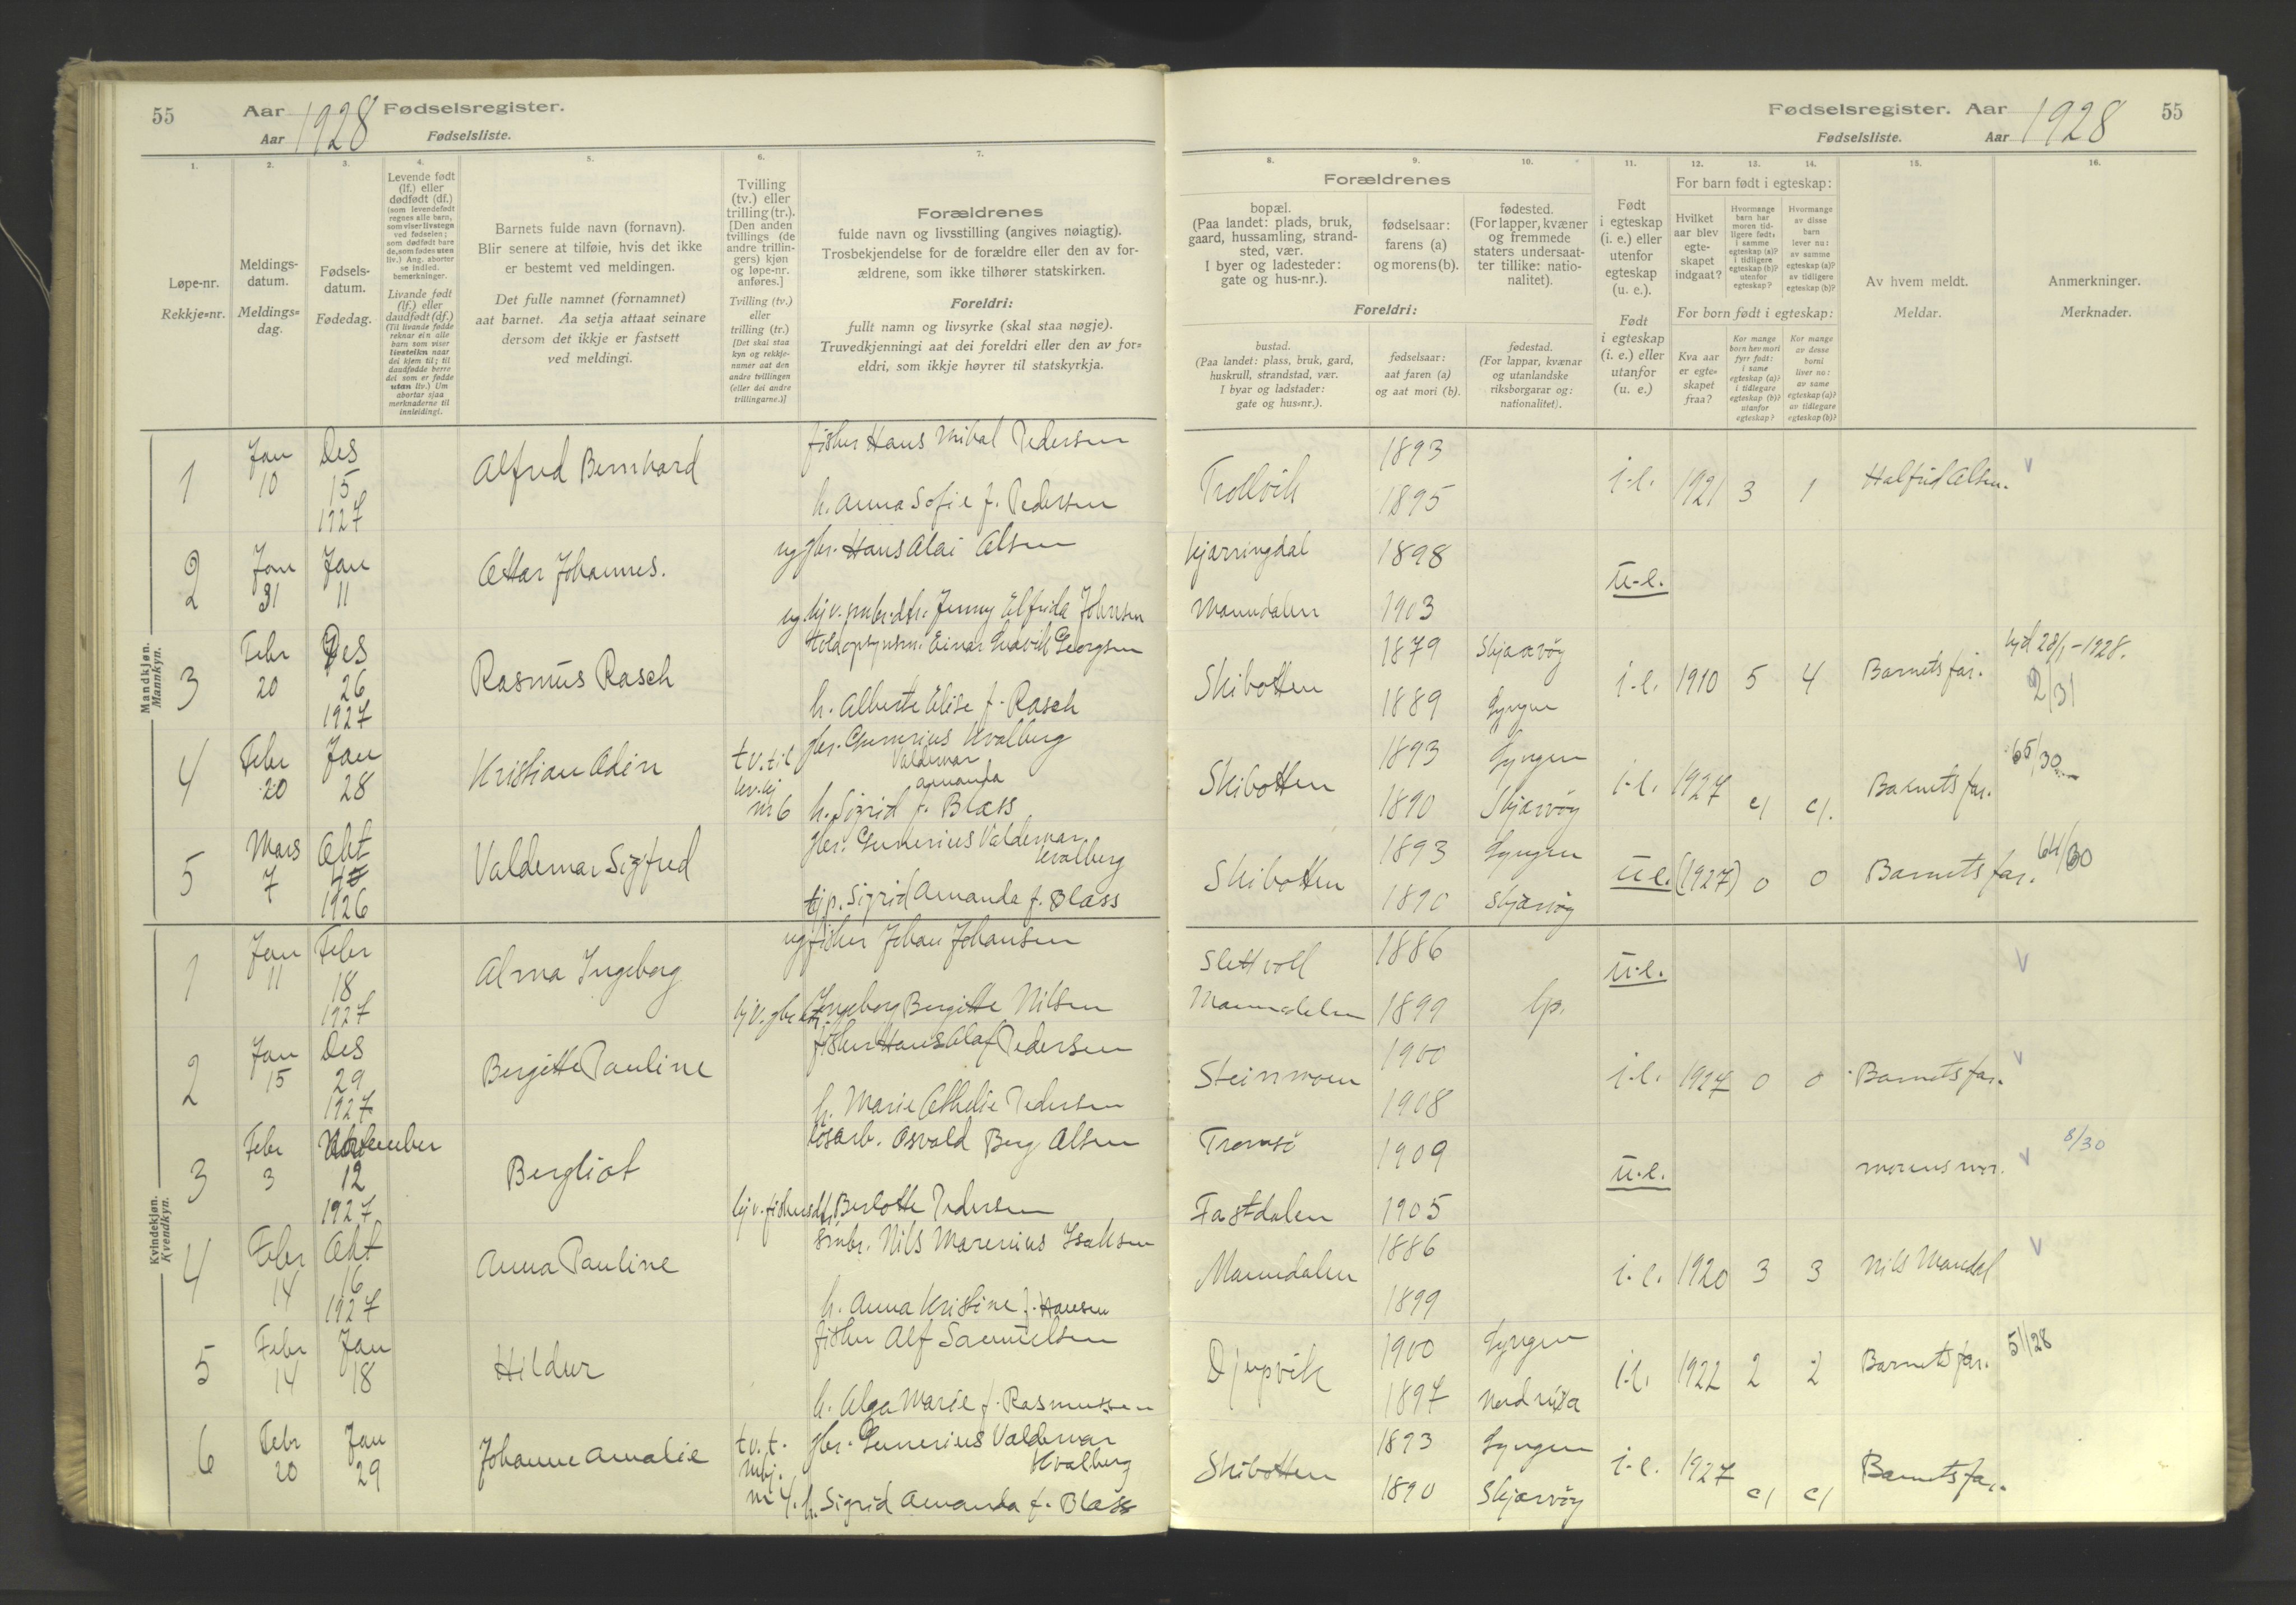 55 Aar 1928 Fødselsregister.
Aar Fødselsliste.
1. 2. 3. 4. 5. 6. 7.
Løpe-nr.
Rekkje=nr.
Meldings-
datum.
Meldings=
dag.
Fødsels-
datum.
Fødedag.
Levende født
(lf.) eller
dødfødt (df.)
(som levendefødt
regnes alle barn,
som viser livstegn
ved fødselen;
som dødfødt bare
de, som fødes uten
liv.) Ang. aborter
se indled.
bemerkninger.
Livande født
(lf.) eller
daudfødt (df.)
(Til livande fødde
reknar ein alle
barn som viser
livsteikn naar
dei kjem til; til
daudfødde berre
dei som er fødde
utan liv.) Um
abortar sjaa
merknaderne til
innleidingi.
Barnets fulde navn (fornavn).
Blir senere at tilføie, hvis det ikke
er bestemt ved meldingen.
Det fulle namnet (fornamnet)
aat barnet. Aa setja attaat seinare
dersom det ikkje er fastsett
ved meldingi.
Tvilling
(tv.) eller
trilling (tr.).
[Den anden
tvillings (de
andre trillin-
gers) kjøn
og løpe-nr.
anføres.]
Tvilling (tv.)
eller
trilling (tr.)
[Det skal staa
kyn og rekkje-
numer aat den
andre tvillingen
(eller dei andre
trillingarne.)]
Forældrenes
fulde navn og livsstilling (angives nøiagtig).
Trosbekjendelse for de forældre eller den av for-
ældrene, som ikke tilhører statskirken.
Foreldri:
fullt namn og livsyrke (skal staa nøgje).
Truvedkjenningi aat dei foreldri eller den av for=
eldri, som ikkje høyrer til statskyrkja.
Mandkjøn.
Mannkyn.
1 Jan 10 Des 15 1927 Alfred Bernhard
fisker Hans Mikal Pedersen
h. Anna Sofie f. Pedersen
2 Jan 31 Jan 11 Ottar Johannes.
ug gbr. Hans Olai Olsen
ug. kjv. gmbr.dtr. Jenny Elfrida Johnsen
3 Febr 20 Des 26 1927 Rasmus Rasch
Einar Ludvik Georgsen
h. Alberte Elise f. Rasch
4 Febr 20 Jan 28 Kristian Odin
tv. til
kv.kj
nr 6
gbr. Gunerius Kvalberg
Valdemar
Amanda
h. Sigrid f. Blass
5 Mars 7 Okt 1926 Valdemar Sigfred
gbr. Gunerius Valdemar
Kvalberg
Sigrid Amanda f. Blass
Kvindekjøn.
Kvendkyn.
1 Jan 11 Febr 18 1927 Alma Ingeborg
ug fisker Johan Johansen
Ingeborg Bergitte Nilsen
2 Jan 15 Des 29 1927 Bergitte Pauline
fisker Hans Olaf Pedersen
h. Marie Othelie Pedersen
3 Febr 3 November 12 1927 Bergliot
løsarb. Osvald Berg Olsen
kjv. fiskersdtr. Berlotte Pedersen
4 Febr 14 Okt 16 1927 Anna Pauline
smbr. Nils Marenius Isaksen
h. Anna Kristine f. Hansen
5 Febr 14 Jan 18 Hildur
fisker Alf Samuelsen
h. Olga Marie f. Rasmussen
6 Febr 20 Jan 29 Johanne Amalie
tv. t.
mkj.
nr 4.
gbr. Gunerius Valdemar
Kvalberg
h. Sigrid Amanda f. Blass
Fødselsregister. Aar 1928 55
Fødselsliste. Aar
8. 9. 10. 11. 12. 13. 14. 15. 16.
Forældrenes
bopæl.
(Paa landet: plads, bruk,
gaard, hussamling, strand-
sted, vær.
I byer og ladesteder:
gate og hus-nr.).
fødselsaar:
farens (a)
og morens (b).
fødested.
(For lapper, kvæner
og fremmede
staters undersaat-
ter tillike: natio-
nalitet).
Foreldri:
bustad.
(Paa landet: plass, bruk, gard,
huskrull, strandstad, vær.
I byar og ladstader:
gate og hus=nr.).
fødselsaar:
aat faren (a)
og aat mori (b).
fødestad.
(For lappar, kvænar
og utanlandske
riksborgarar og:
nationalitet).
Født
i egteskap
(i. e.) eller
utenfor
egteskap
(u. e.).
Født
i egteskap
(i. e.) eller
utanfor
(u. e.)
For barn født i egteskap:
Hvilket
aar blev
egte-
skapet
indgaat?
Hvormange
barn har
moren tid-
ligere født:
i samme
egteskap (a)?
i tidligere
egteskap (b)?
utenfor
egteskap?
Hvormange
av disse
barn
lever nu:
av samme
egteskap (a)?
av tidligere
egteskap (b)?
For born født i egteskap:
Kva aar
er egte=
skapet
fraa?
Kor mange
born hev mori
fyrr født:
i same
egteskap (a)?
i tidlegare
egteskap (b)?
utanfor
egteskap?
Kor mange
av desse
borni
liver no:
av same
egteskap (a)?
av tidlegare
egteskap (b)?
Av hvem meldt.
Meldar.
Anmerkninger.
Merknader.
Trollvik 1893 1895 i.e. 1921 3 1 Halfrid Olsen. v
Kjærringdal 1898
Manndalen 1903 u.e.
Skibotten 1879 Skjærvøy
1889 Lyngen i.e. 1910 5 4 Barnets far. kjd 28/1-1928.
2/31
Skibotten 1893 Lyngen
1890 Skjærvøy i.e. 1927 c/ c/. Barnets far. 65/30
Skibotten 1893 Lyngen
1890 Skjærvøy u.e. (1927) 0 0 Barnets far. 64/30
Slettvoll 1886
Manndalen 1899 lp. u.e. v
Steinnmoen 1900
1908 i.e. 1927 0 0 Barnets far. v
Tromsö 1909
Fastdalen 1905 u.e. morens mor. v 8/30
Manndalen 1886
1899 i.e. 1920 3 3 Nils Mandal v
Djupvik 1900 Lyngen
1897 Nordreisa i.e. 1922 2 2 Barnets far. 51/28
Skibotten 1893 Lyngen
1890 Skjærvøy i.e. 1927 c/ c/ Barnets far.